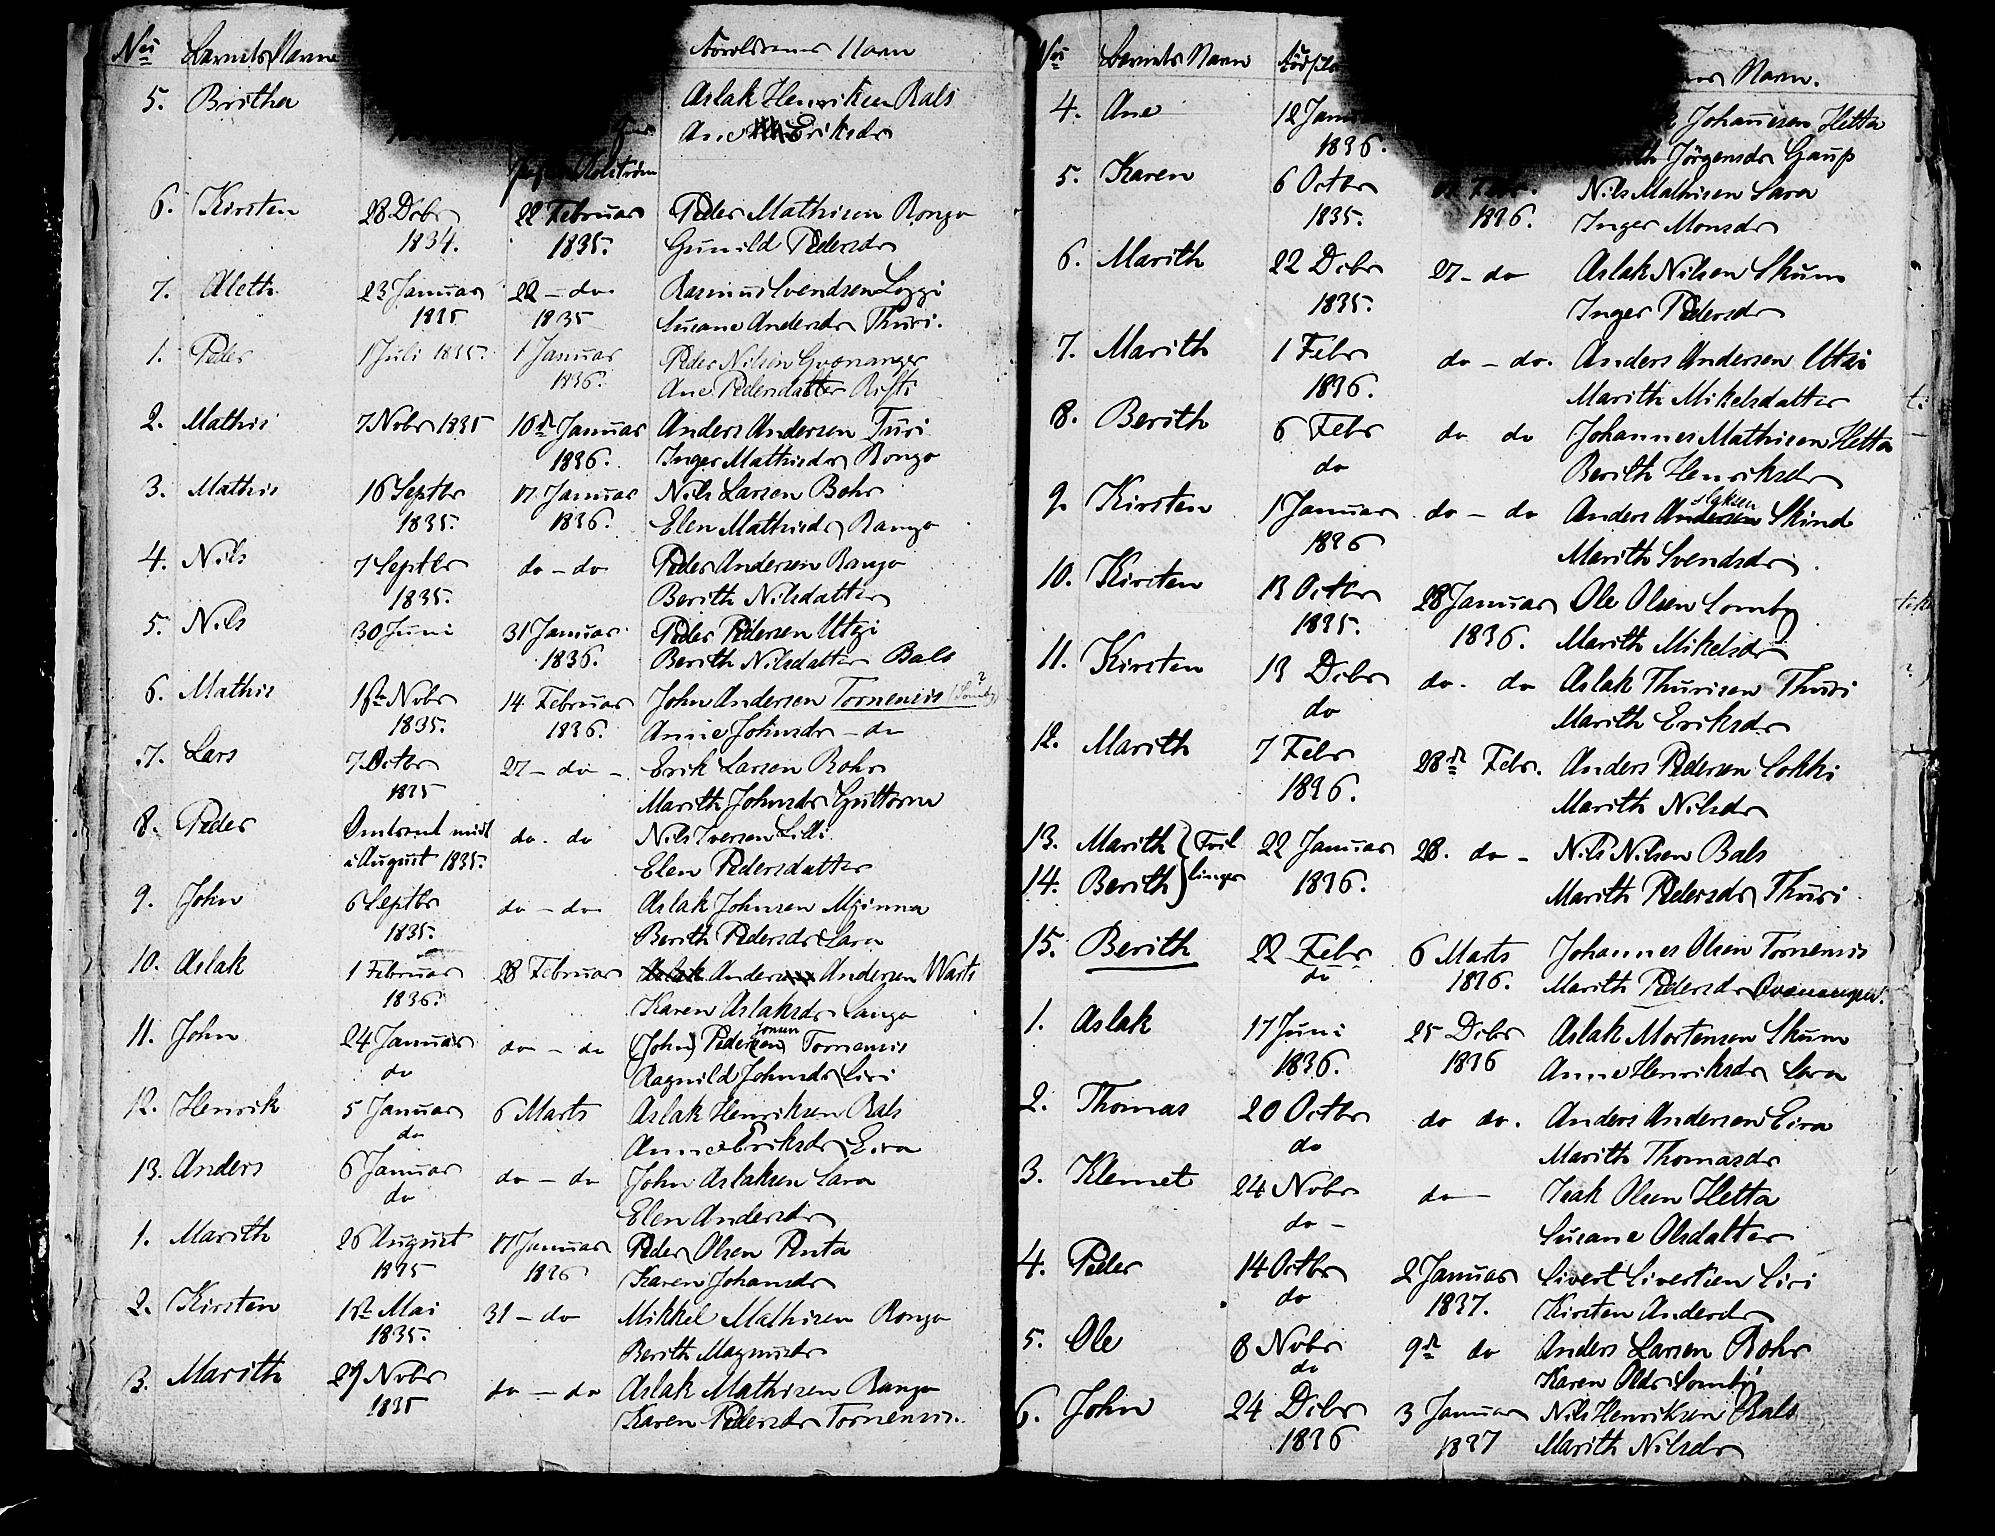 No Barnets Navn Forældrenes Navn
5. Britha Aslak Henriksen Bals
Ane Eriksdr
Holström
6. Kirsten 28 Dcbr 22 Februar Peder Mathisen Rongo
1834. 1835. Gunild Pedersdr
7. Aleth 23 Januar 22 - do Rasmus Svendsen Loggi
1835 1835 Susane Andersdr Thuri.
1. Peder 1 Juli 1835. 1 Januar Peder Nilsen Qvænanger
1836. Ane Pedersdatter Rist
2. Mathis 7 Nobr 1835 10de Januar Anders Andersen Turi
1836. Inger Mathisdr Rongo
3. Mathis 16 Septbr 17 Januar Nils Larsen Bohr
1835. 1836. Elen Mathisdr Rango
4. Nils 7 Septbr do - do Peder Andersen Rango
1835. Berith Nilsdatter
5. Nils 30 Juni 31 Januar Peder Pedersen Utzi
1836. Berith Nilsdatter Bals
6. Mathis 1ste Nobr 14 Februar John Andersen Tornensis (Somby?)
1835. 1836. Anne Johnsdr - do
7. Lars 7 Octbr 27 - do - Erik Larsen Rohr
1835 Marith Johnsdr Guttorm
8. Peder Omtrent midt do. do Nils Iversen Lilli
i August 1835. Elen Pedersdatter
9. John 6 Septbr do - do Aslak Johnsen Mjinna
1835. Berith Pedersdr Sara
10. Aslak 1 Februar 28 Februar Aslak Andersen Andersen Warts
1836. Karen Aslaksdr Sango
11. John 24 Januar do - do (John) Peder(sen) Jonsen Tornensis
do Ragnild Johnsdr Siri
12. Henrik 5 Januar 6 Marts Aslak Henriksen Bals
do Anne Eriksdr Eira
13. Anders 6 Januar do - do John Aslaksen Sara
do Elen Andersdr
1. Marith 26 August 17 Januar Peder Olsen Penta
1835 1836 Karen Johansdr
2. Kirsten 1ste Mai 31 - do Mikkel Mathisen Rongo
1835. Berith Magnusdr
3. Marith 29 Nobr do - do Aslak Mathisen Rango
1835 Karen Pedersdr Tornensis.
No Barnets Navn Navn.
4. Ane 12 Johannesen Hetta
1836. Jörgensdr Gaup
5. Karen 6 Octbr Nils Mathisen Sara
1835. 1836. Inger Monsdr
6. Marith 22 Dcbr 27 - do Aslak Nilsen Skum
1835. Inger Pedersdr
7. Marith 1 Febr do - do. Anders Andersen Utzi
1836. Marith Mikelsdatter
8. Berith 6 Febr do do Johannes Mathisen Hetta
do Berith Henriksdr
9. Kirsten 1 Januar do - do Anders Andersen Slaksen Skind
1836 Marith Svendsdr
10. Kirsten 13 Octbr 28 Januar Ole Olsen Somby
1835. 1836. Marith Mikelsdr
11. Kirsten 13 Dcbr do. do Aslak Thurisen Thuri
do Marith Eriksdr
12. Marith 7 Febr 28de Febr. Anders Pedersen Sokki
1836. Marith Nilsdr
13. Marith } Tvil 22 Januar 28. do - Nils Nilsen Bals
14. Berith } linger 1836. Marith Pedersdr Thuri
15. Berith 22 Febr 6 Marts Johannes Olsen Tornensis
do 1836. Marith Pedersdr Qvænanger.
1. Aslak 17 Juni 25 Dcbr Aslak Mortensen Skum
1836. 1836 Anne Henriksdr Sara
2. Thomas 20 Octbr do do. Anders Andersen Eira
do Marith Thomasdr
3. Klemet 24 Nobr do - Isak Olsen Hetta
do - Susane Olsdatter
4. Peder 14 Octbr 2 Januar Sivert Sivertsen Siri
do 1837. Kirsten Andersdr
5. Ole 8 Nobr 9de do Anders Larsen Rohr
do Karen Olsdr Somby
6. John 24 Dcbr 3 Januar Nils Henriksen Bals
1836 1837 Marith Nilsdr